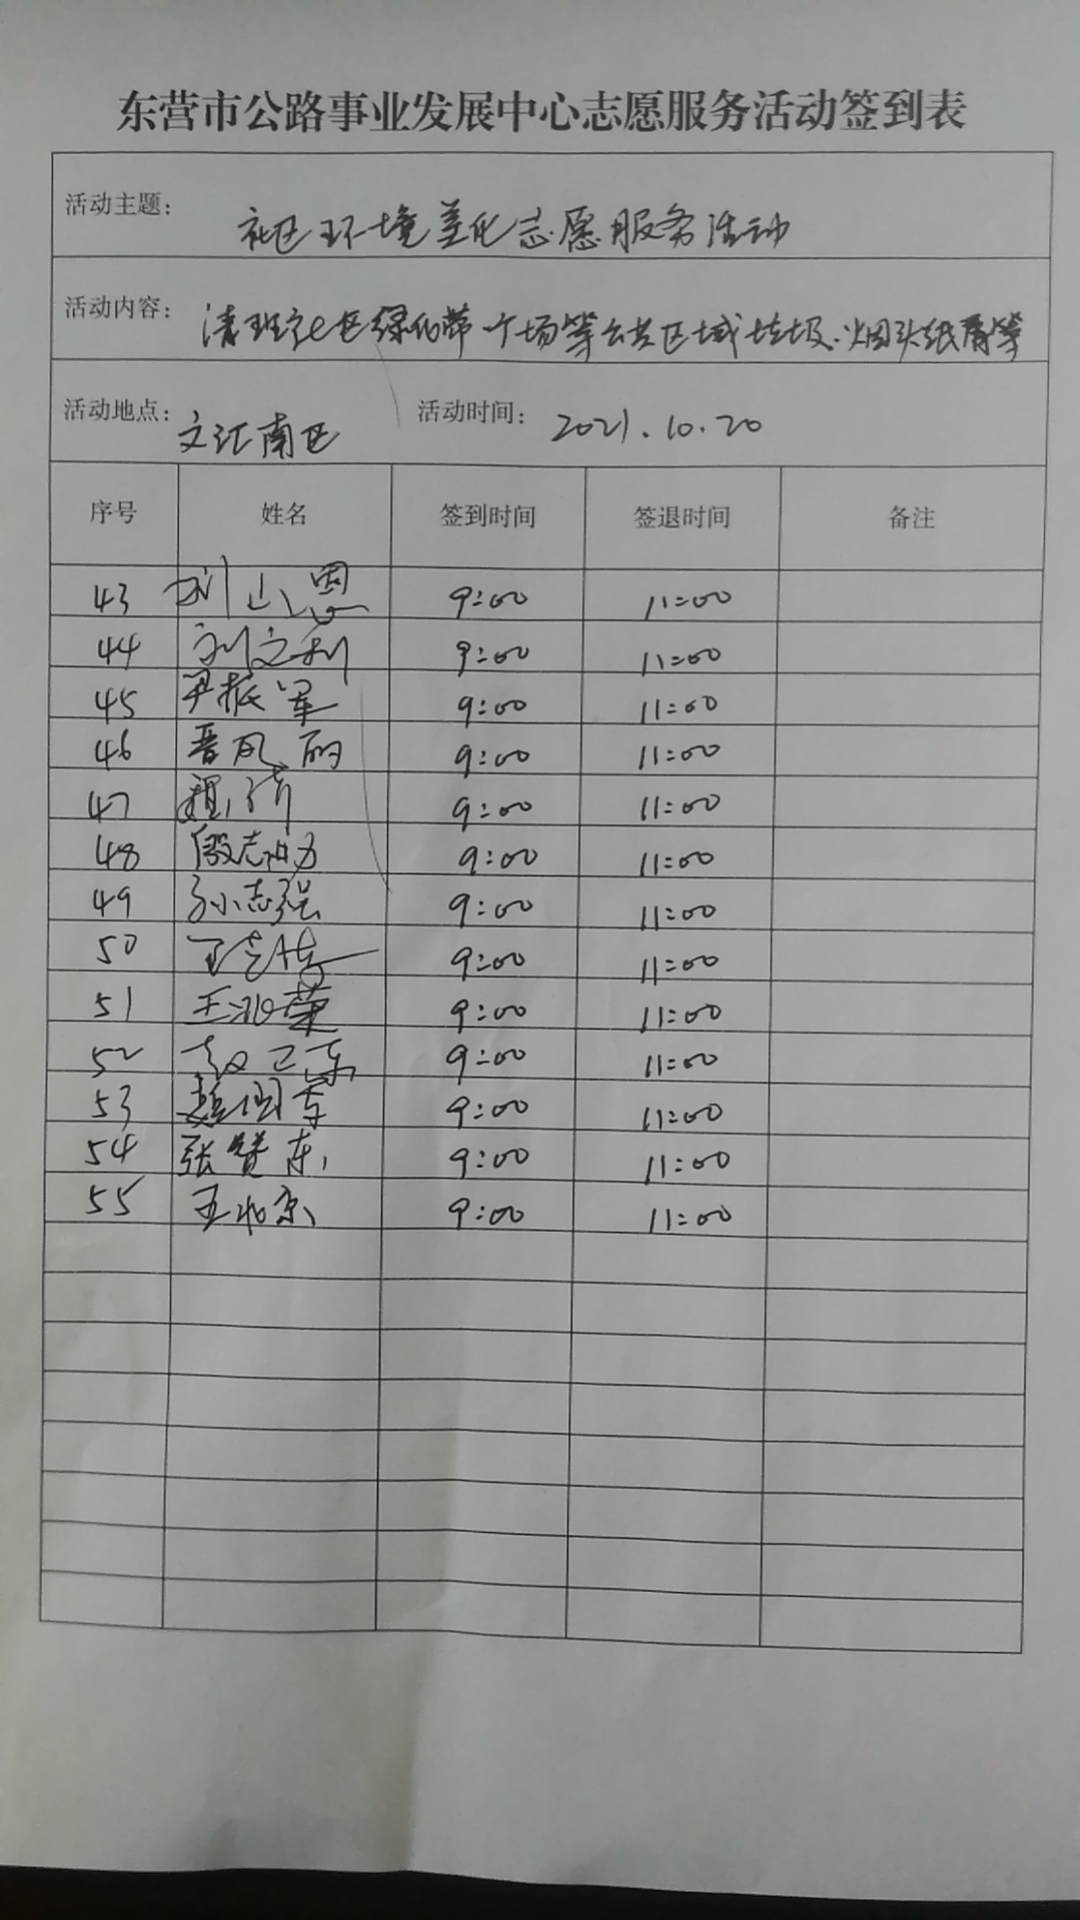 东营市公路事业发展中心志愿服务活动签到表
活动主题： 社区环境美化志愿服务活动
活动内容： 清理社区绿化带 广场等公共区域垃圾、烟头纸屑等
活动地点： 文汇南区 活动时间： 2021.10.20
序号 姓名 签到时间 签退时间 备注
43 9:00 11:00
44 刘文利 9:00 11:00
45 尹振军 9:00 11:00
46 9:00 11:00
47 9:00 11:00
48 9:00 11:00
49 孙志强 9:00 11:00
50 9:00 11:00
51 9:00 11:00
52 赵卫东 9:00 11:00
53 赵国东 9:00 11:00
54 张赞东 9:00 11:00
55 王北京 9:00 11:00